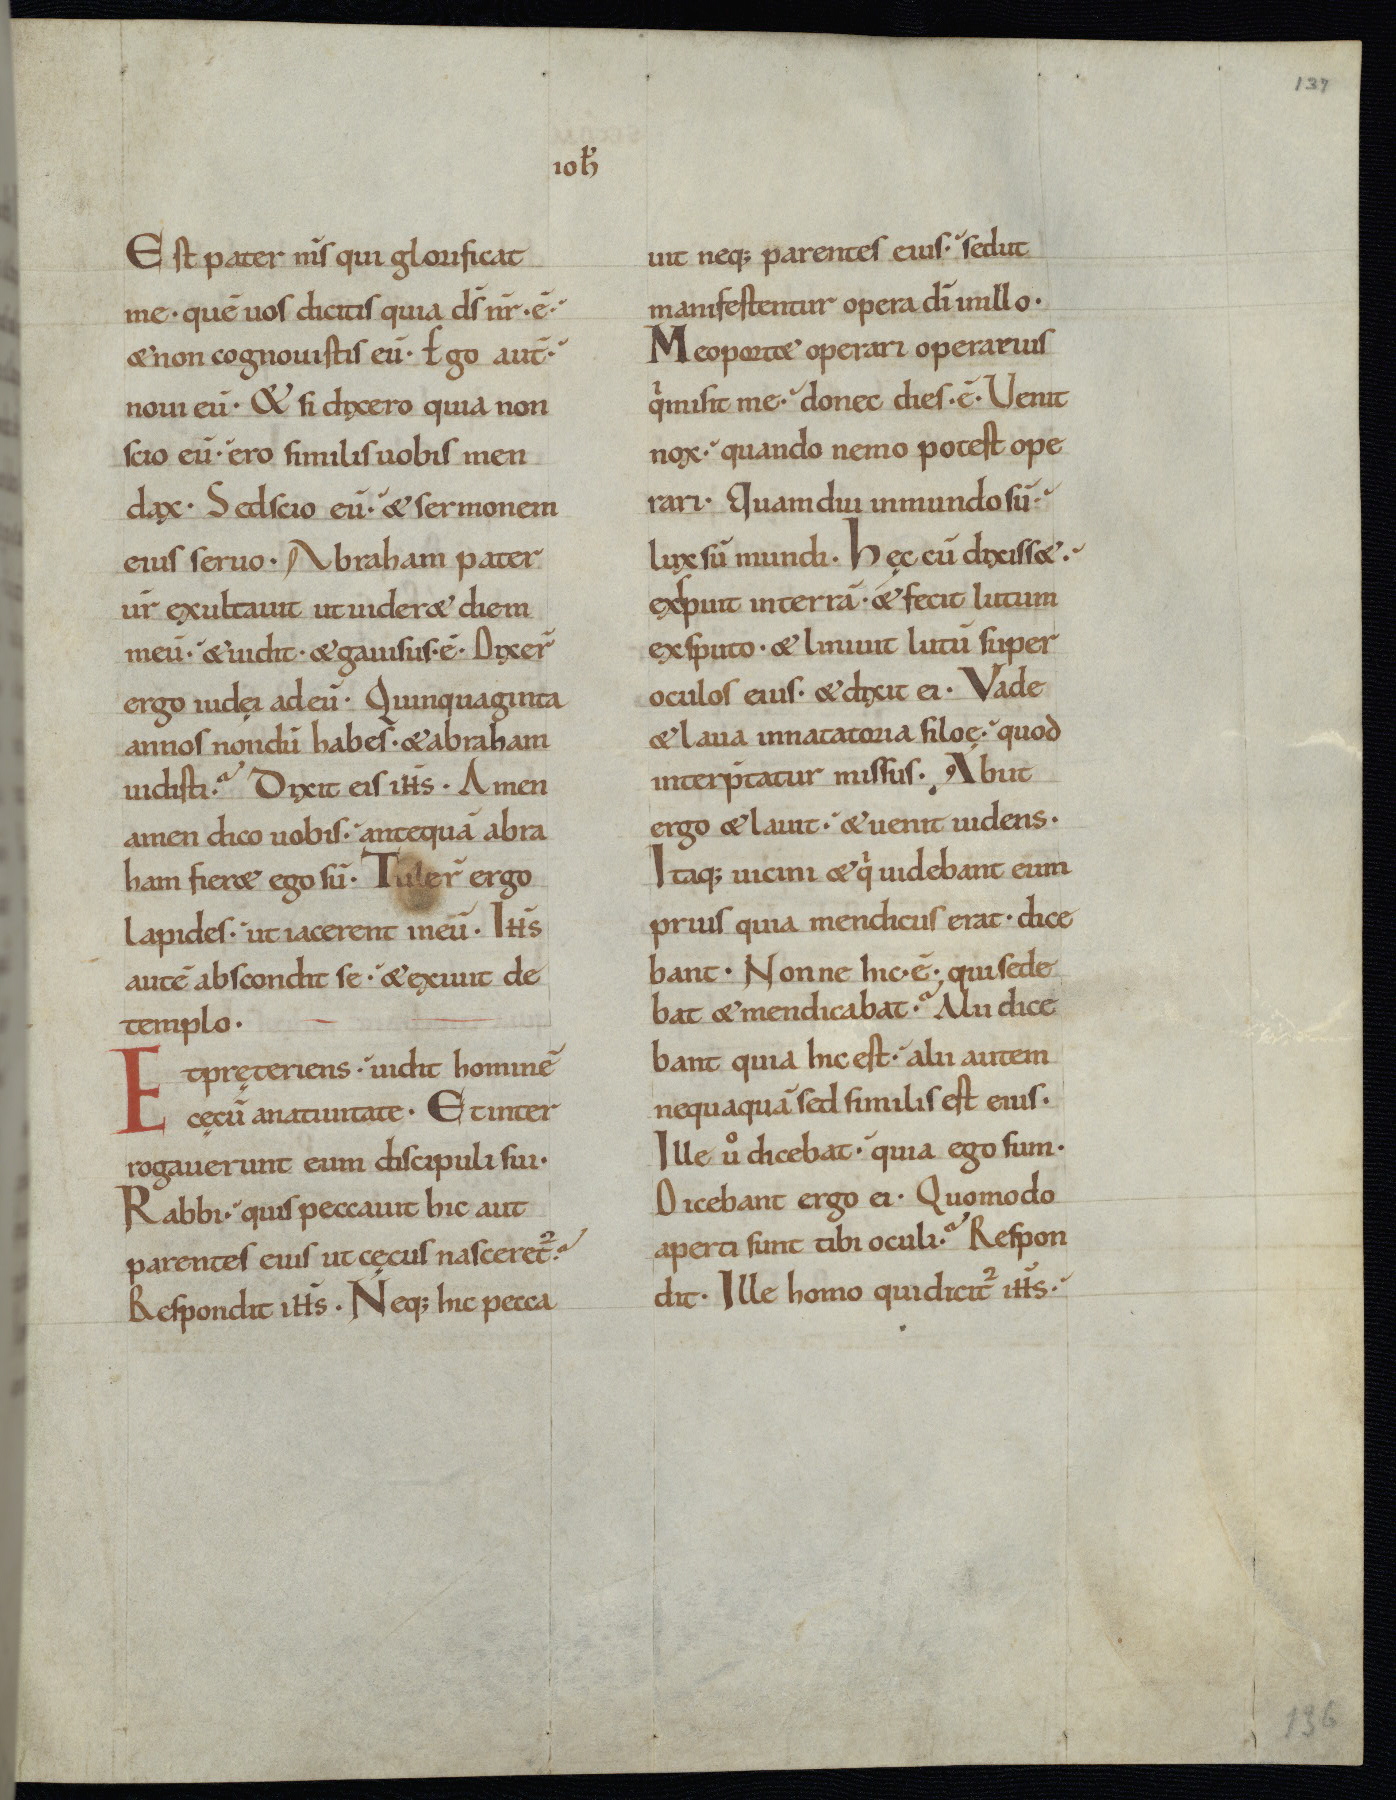 137
ioh̅
Est pater m̅s qui glorificat
me · que̅ uos dicitis quia ds̅ nr̅ · e̅ ·
& non cognouistis eu̅ · Ego aut̅ ·
noui eu̅ · & si dixero quia non
scio eu̅ · ero similis uobis men
dax · Sed scio eu̅ · & sermonem
eius seruo · Abraham pater
ur̅ exultauit ut uider& diem
meu̅ · & uidit · & gauisus · e̅ · Dixer̅
ergo iudęi ad eu̅ · Quinquaginta
annos nondu̅ habes̅ · & abraham
uidisti · Dixit eis ihs̅ · Amen
amen dico uobis · antequa̅ abra
ham fier& ego su̅ · Tuler̅ ergo
lapides · ut iacerent in eu̅ · Ihs̅
aute̅ abscondit se · & exiuit de
templo ·
Et pręteriens · uidit homine̅
cęcu̅ a natiuitate · Et inter
rogauerunt eum discipuli sui ·
Rabbi · quis peccauit hic aut
parentes eius ut cęcus nasceret² ·
Respondit ihs̅ · Neq; hic pecca
uit neq; parentes eius · sed ut
manifestentur opera di̅ in illo ·
Me oport& operari opera eius
qͥ misit me · donec dies · e̅ · Uenit
nox · quando nemo potest ope
rari · Quamdiu in mundo su̅ ·
lux su̅ mundi · Hęc cu̅ dixiss& ·
exspuit in terra̅ · & fecit lutum
ex sputo · & liniuit lutu̅ super
oculos eius · & dixit ei · Vade
& laua in natatoria siloę · quod
interp̅tatur missus · Abiit
ergo & lauit · & uenit uidens ·
Itaq; uicini & qͥ uidebant eum
prius quia mendicus erat · dice
bant · Nonne hic · e̅ · qui sede
bat & mendicabat · Alii dice
bant quia hic est · alii autem
nequaqua̅ sed similis est eius ·
Ille uͦ dicebat · quia ego sum ·
Dicebant ergo ei · Quomodo
aperti sunt tibi oculi · Respon
dit · Ille homo qui dicit² ihs̅ ·
136